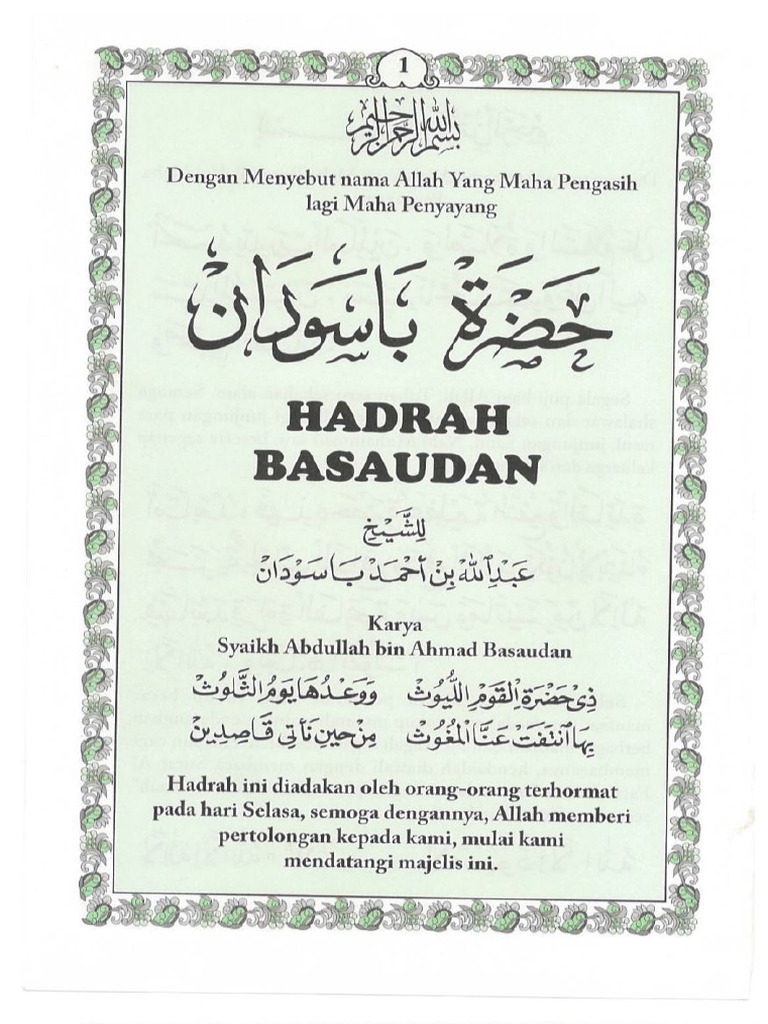 1
بسم الله الرحمن الرحيم
Dengan Menyebut nama Allah Yang Maha Pengasih
lagi Maha Penyayang
حَضْرَة بَاسَوْدَانْ
HADRAH
BASAUDAN
لِلشَّيْخِ
عَبْدِ اللهِ بْنِ أَحْمَدْ بَاسَوْدَانْ
Karya
Syaikh Abdullah bin Ahmad Basaudan
ذِيْ حَضْرَةِ الْقَوْمِ اللُّيُوْثْ وَوَعْدُهَا يَوْمُ الثَّلُوْثْ
بِهَا انْتَفَتْ عَنَّا الْمُغُوْثْ مِنْ حِيْنِ نَأْتِيْ قَاصِدِيْنْ
Hadrah ini diadakan oleh orang-orang terhormat
pada hari Selasa, semoga dengannya, Allah memberi
pertolongan kepada kami, mulai kami
mendatangi majelis ini.